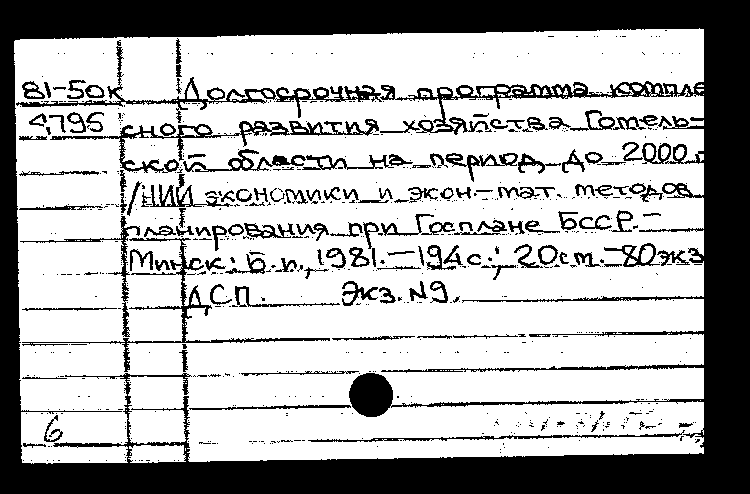 81-50к Долгосрочная программа компле
4795 сного развития хозяйства Гомель-
ской области на период до 2000 г
/НИИ экономики и экон.-мат. методов
планирования при Госплане БССР.-
Минск: Б.и., 1981.-194с.; 20см.-80экз
ДСП. Экз.N9.
6